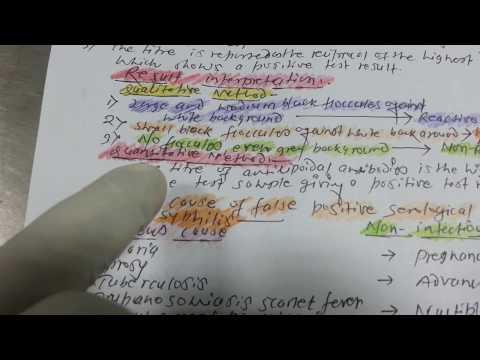 the titre is reported the reciprocal of the highest
which shows a possitive test result.
Result interpretation
Qualitative Method
1) Large and medium black floccules against
white background → Reactive
2) Small black floccules against white background →
3) No floccules even grey background → Non-
Quantitative Method
titre of antilipoidal antibodies is the hi
test sample giving a positive test r
cause of false positive serological
syphilis
cause Non-infection
aria → Pregnanc
rosy
Tuberculosis → Advanc
scarlet fever → Multipl